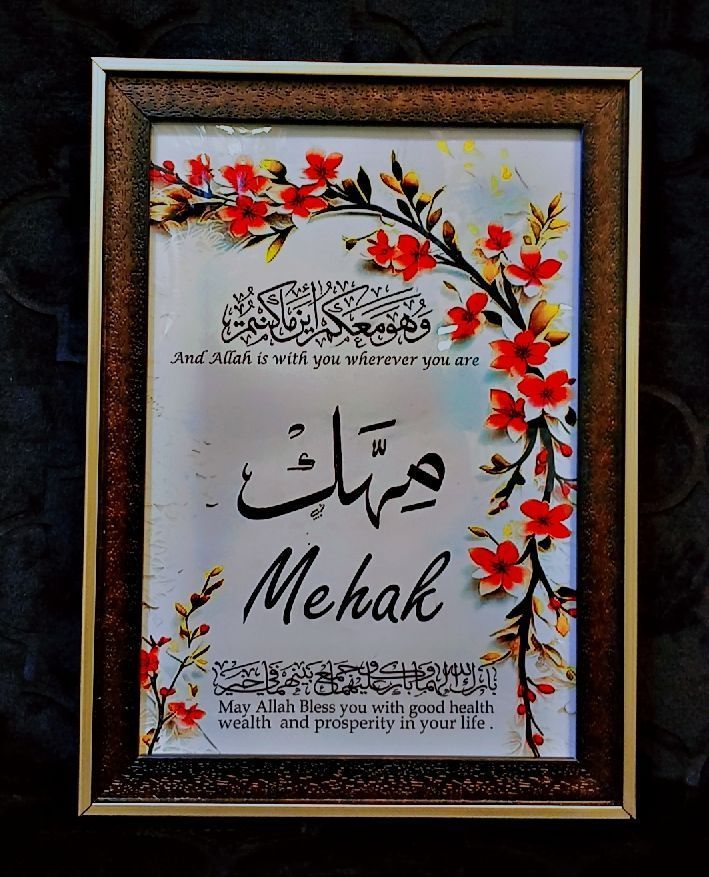 وَهُوَ مَعَكُمْ أَيْنَ مَا كُنْتُمْ
And Allah is with you wherever you are
مِہَک
Mehak
بَارَكَ اللهُ وَبَارَكَ وَجَمَعَ فِي خَيْرٍ
May Allah Bless you with good health
wealth and prosperity in your life .